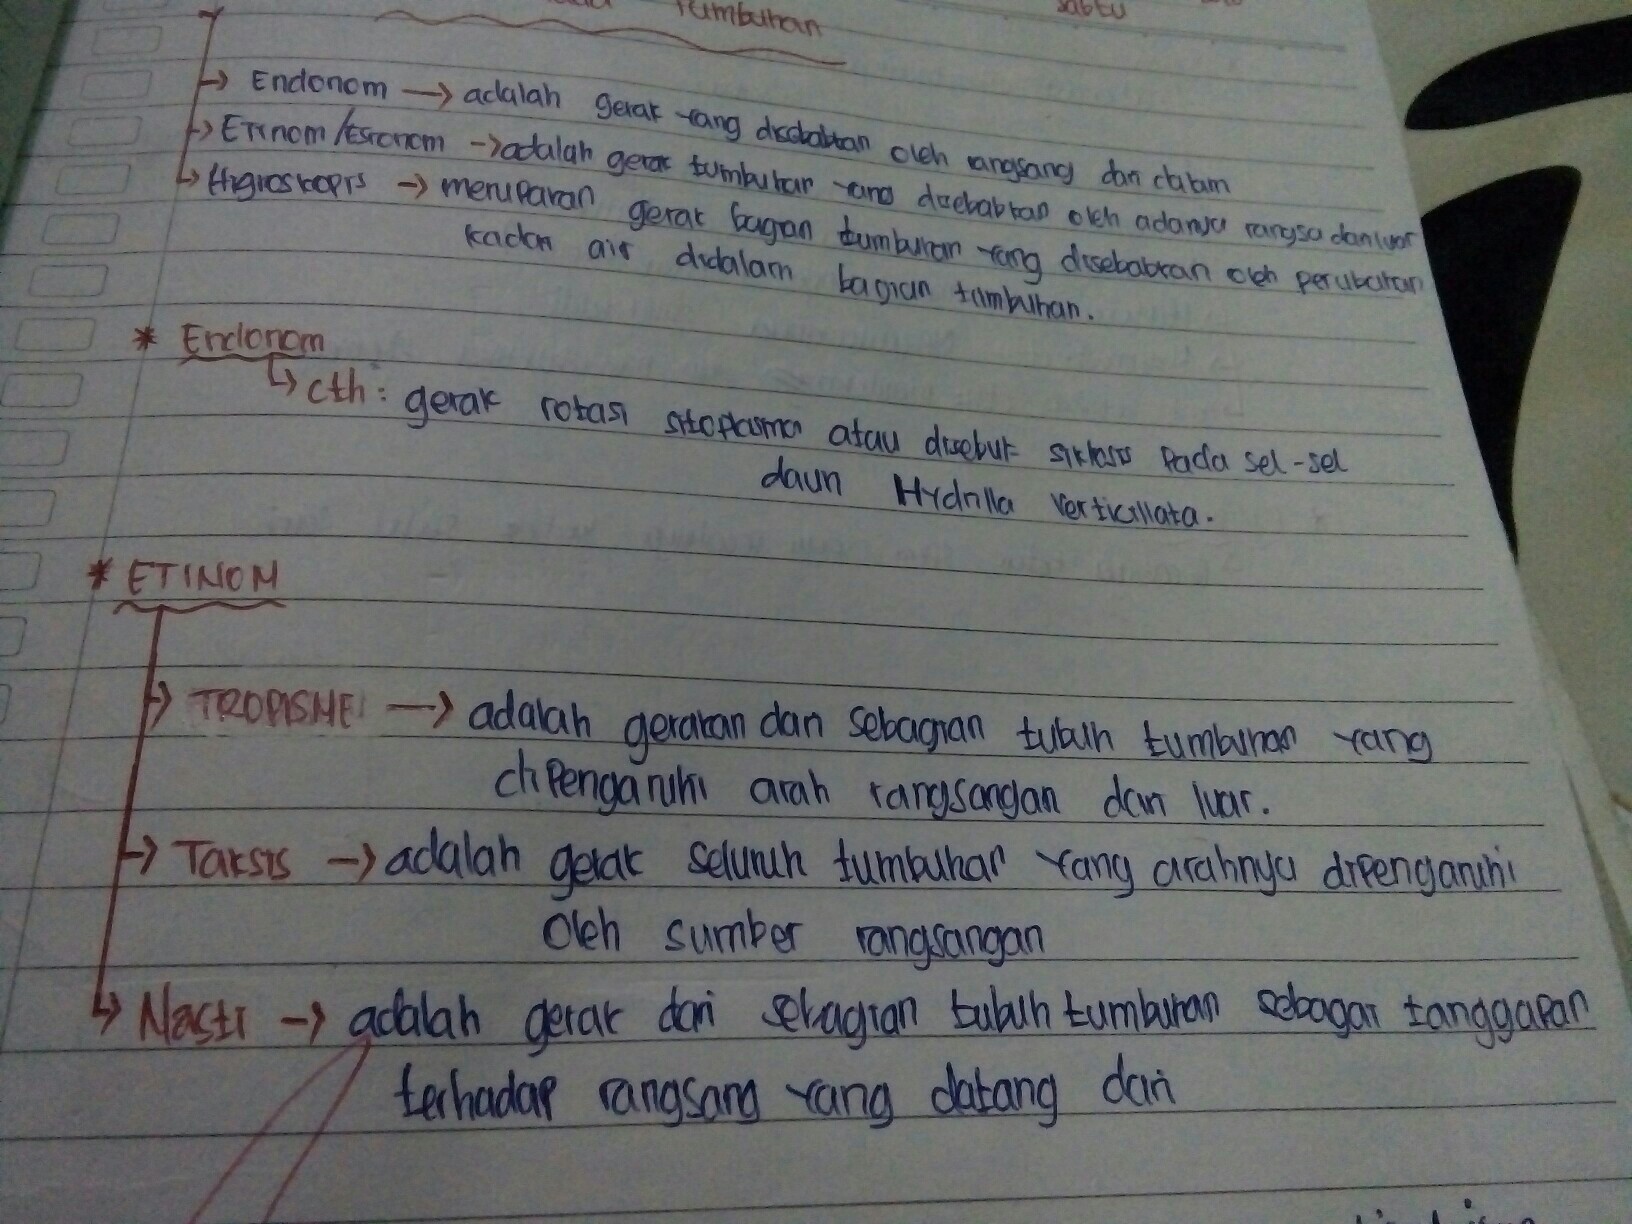 Tumbuhan
Sabtu
→ Endonom → adalah gerak yang disebabkan oleh rangsang dari dalam
→ Etinom/Esionom → adalah gerak tumbuhan yang disebabkan oleh adanya rangsa dari luar
→ Higroskopis → merupakan gerak bagian tumbuhan yang disebabkan oleh perubahan
kadar air didalam bagian tumbuhan.
* Endonom
↳ cth : gerak rotasi sitoplasma atau disebut siklosis pada sel-sel
daun Hydrilla Verticillata.
* ETINOM
→ TROPISME → adalah gerakan dari sebagian tubuh tumbuhan yang
dipengaruhi arah rangsangan dari luar.
→ Taksis → adalah gerak seluruh tumbuhan yang arahnya dipengaruhi
oleh sumber rangsangan
→ Nasti → adalah gerak dari sebagian tubuh tumbuhan sebagai tanggapan
terhadap rangsang yang datang dari